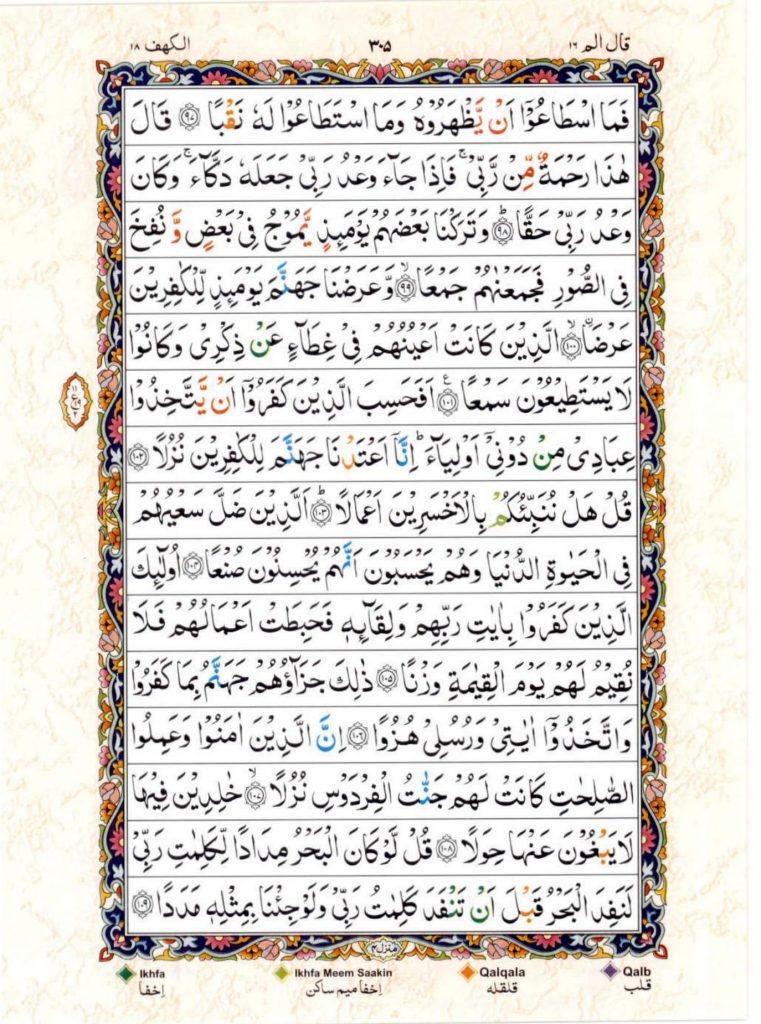 قال الم ١٦
٣٠٥
الكهف ١٨
فَمَا اسْطَاعُوْۤا اَنْ يَّظْهَرُوْهُ وَمَا اسْتَطَاعُوْا لَهٗ نَقْبًا ﴿۹۷﴾ قَالَ
هٰذَا رَحْمَةٌ مِّنْ رَّبِّيْ ۚ فَاِذَا جَآءَ وَعْدُ رَبِّيْ جَعَلَهٗ دَكَّآءَ ۚ وَكَانَ
وَعْدُ رَبِّيْ حَقًّا ؕ﴿۹۸﴾ وَتَرَكْنَا بَعْضَهُمْ يَوْمَئِذٍ يَّمُوْجُ فِيْ بَعْضٍ وَّ نُفِخَ
فِي الصُّوْرِ فَجَمَعْنٰهُمْ جَمْعًا ۙ﴿۹۹﴾ وَّعَرَضْنَا جَهَنَّمَ يَوْمَئِذٍ لِّلْكٰفِرِيْنَ
عَرْضَا ۙ﴿۱۰۰﴾ الَّذِيْنَ كَانَتْ اَعْيُنُهُمْ فِيْ غِطَآءٍ عَنْ ذِكْرِيْ وَكَانُوْا
لَا يَسْتَطِيْعُوْنَ سَمْعًا ﴿۱۰۱﴾ اَفَحَسِبَ الَّذِيْنَ كَفَرُوْۤا اَنْ يَّتَّخِذُوْا
عِبَادِيْ مِنْ دُوْنِيْۤ اَوْلِيَآءَ ؕ اِنَّاۤ اَعْتَدْنَا جَهَنَّمَ لِلْكٰفِرِيْنَ نُزُلًا ﴿۱۰۲﴾
قُلْ هَلْ نُنَبِّئُكُمْ بِالْاَخْسَرِيْنَ اَعْمَالًا ؕ﴿۱۰۳﴾ اَلَّذِيْنَ ضَلَّ سَعْيُهُمْ
فِي الْحَيٰوةِ الدُّنْيَا وَهُمْ يَحْسَبُوْنَ اَنَّهُمْ يُحْسِنُوْنَ صُنْعًا ﴿۱۰۴﴾ اُولٰٓئِكَ
الَّذِيْنَ كَفَرُوْا بِاٰيٰتِ رَبِّهِمْ وَلِقَآئِهٖ فَحَبِطَتْ اَعْمَالُهُمْ فَلَا
نُقِيْمُ لَهُمْ يَوْمَ الْقِيٰمَةِ وَزْنًا ﴿۱۰۵﴾ ذٰلِكَ جَزَآؤُهُمْ جَهَنَّمُ بِمَا كَفَرُوْا
وَاتَّخَذُوْۤا اٰيٰتِيْ وَرُسُلِيْ هُزُوًا ﴿۱۰۶﴾ اِنَّ الَّذِيْنَ اٰمَنُوْا وَعَمِلُوا
الصّٰلِحٰتِ كَانَتْ لَهُمْ جَنّٰتُ الْفِرْدَوْسِ نُزُلًا ۙ﴿۱۰۷﴾ خٰلِدِيْنَ فِيْهَا
لَا يَبْغُوْنَ عَنْهَا حِوَلًا ﴿۱۰۸﴾ قُلْ لَّوْ كَانَ الْبَحْرُ مِدَادًا لِّكَلِمٰتِ رَبِّيْ
لَنَفِدَ الْبَحْرُ قَبْلَ اَنْ تَنْفَدَ كَلِمٰتُ رَبِّيْ وَلَوْ جِئْنَا بِمِثْلِهٖ مَدَدًا ﴿۱۰۹﴾
منزل ٤
Ikhfa
اِخفا
Ikhfa Meem Saakin
اِخفا میم ساکن
Qalqala
قلقله
Qalb
قلب